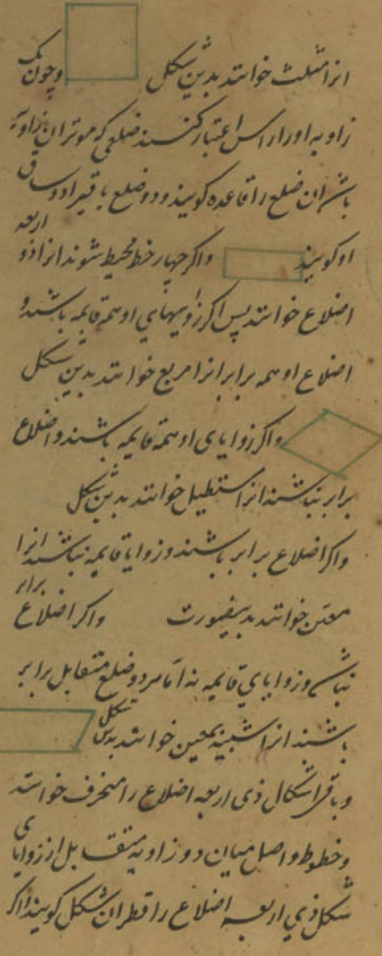 انرا مثلث خوانند بدین شکل وچون یک
زاویه اورا راس اعتبار کنند ضلعی که موتر ان زاویه
باشد ان ضلع را قاعده کویند ودو ضلع باقی را دو ساق
او کویند واکر چهار خط محیط شوند انرا ذو اربعه
اضلاع خوانند پس اکر زویهای او همه قایمه باشند و
اضلاع او همه برابر انرا مربع خوانند بدین شکل
واکر زوایای او همه قایمه باشند و اضلاع
برابر نباشند انرا مستطیل خوانند بدین شکل
واکر اضلاع برابر باشند و زوایا قایمه نباشند انرا
معین خوانند بدینصورت واکر اضلاع برابر
نباشد وزوایای قایمه نه اما هر دو ضلع متقابل برابر
باشند انرا شبیه بمعین خوانند بدین شکل
وباقی اشکال ذی اربعه اضلاع را منحرف خوانند
وخطوط واصل میان دو زاویه متقابل از زوایای
شکل ذی اربعه اضلاع را قطر ان شکل کویند واکر